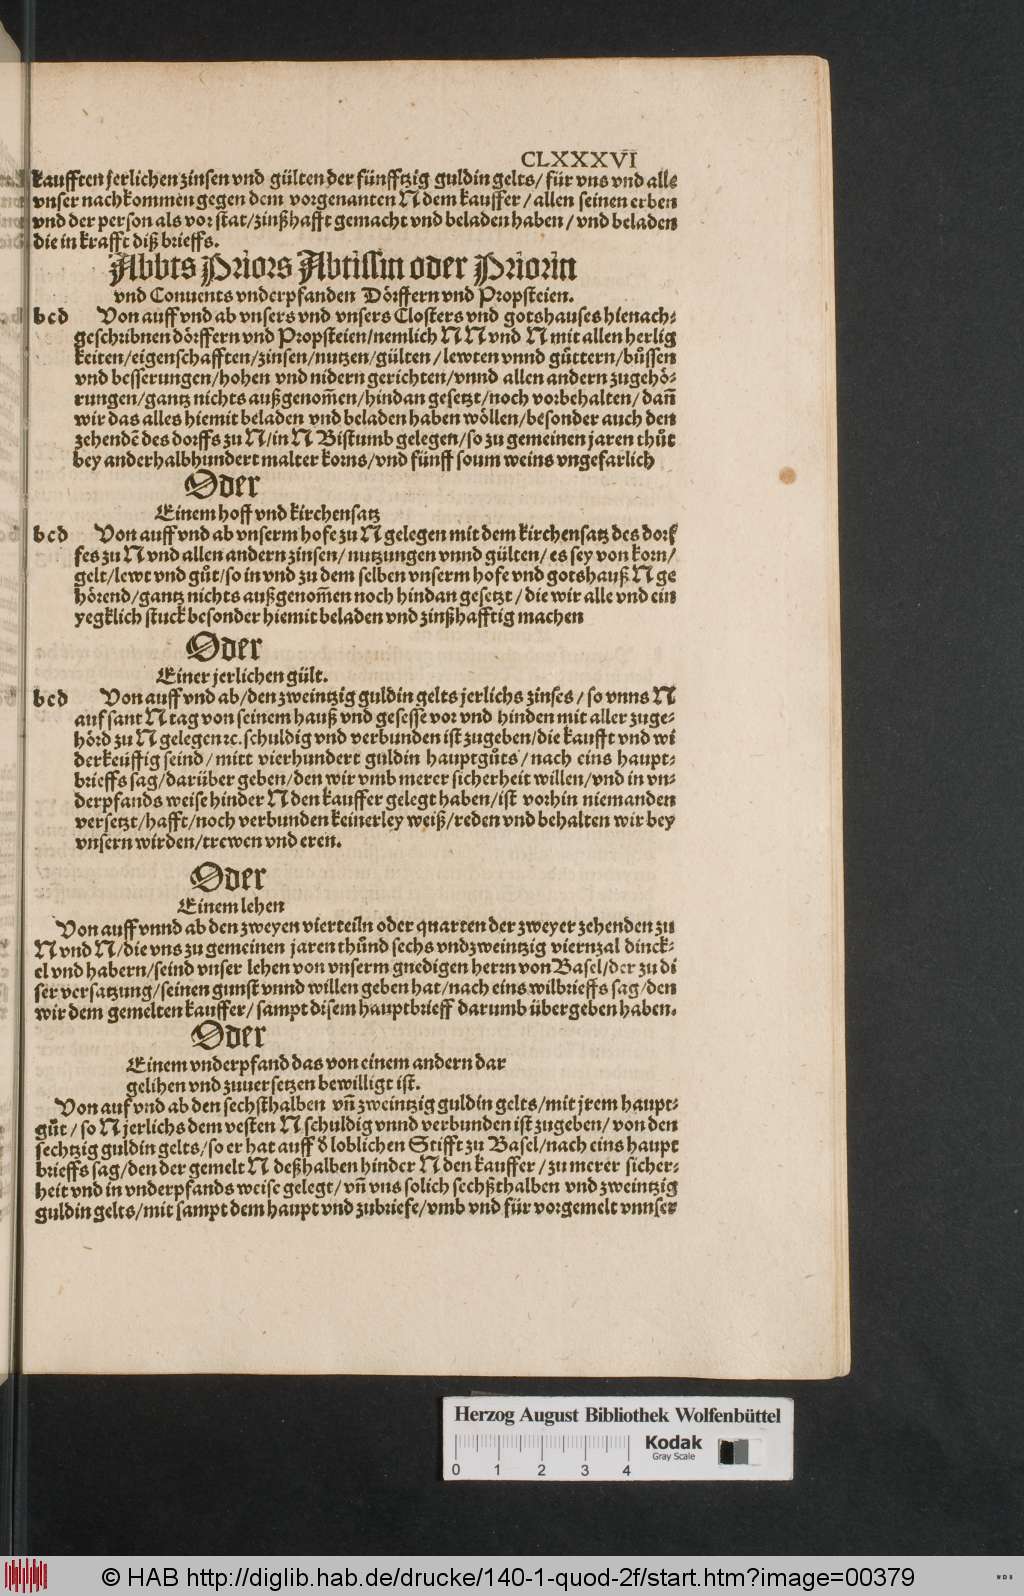 CLXXXVI
kaufften jerlichen zinsen vnd gülten der fünfftzig guldin gelts/ für vns vnd alle
vnser nachkommen gegen dem vorgenanten N dem kauffer / allen seinen erben
vnd der person als vor stat/zinßhafft gemacht vnd beladen haben / vnd beladen
die in krafft diß brieffs.
Abbts Priors Abtissin oder Priorin
vnd Conuents vnderpfanden Dörffern vnd Propsteien.
b c d Von auff vnd ab vnsers vnd vnsers Closters vnd gotshauses hienach⸗
geschribnen dörffern vnd Propsteien/nemlich N N vnd N mit allen herlig
keiten/eigenschafften/zinsen/nutzen/gülten / lewten vnnd gůttern/bůssen
vnd besserungen/hohen vnd nidern gerichten/vnnd allen andern zugehö⸗
rungen/gantz nichts außgenom̃en/hindan gesetzt/noch vorbehalten/ dañ
wir das alles hiemit beladen vnd beladen haben wöllen/besonder auch den
zehendẽ des dorffs zu N/in N Bistumb gelegen/so zu gemeinen jaren thůt
bey anderhalbhundert malter korns/vnd fünff soum weins vngefarlich
Oder
Einem hoff vnd kirchensatz
b c d Von auff vnd ab vnserm hofe zu N gelegen mit dem kirchensatz des dorf
fes zu N vnd allen andern zinsen/ nutzungen vnnd gülten/ es sey von korn/
gelt/lewt vnd gůt/so in vnd zu dem selben vnserm hofe vnd gotshauß N ge
hörend/gantz nichts außgenom̃en noch hindan gesetzt / die wir alle vnd ein
yegklich stuck besonder hiemit beladen vnd zinßhafftig machen
Oder
Einer jerlichen gült.
b c d Von auff vnd ab/den zweintzig guldin gelts jerlichs zinses / so vnns N
auf sant N tag von seinem hauß vnd gesesse vor vnd hinden mit aller zuge⸗
hörd zu N gelegen ⁊c. schuldig vnd verbunden ist zugeben/die kaufft vnd wi
derkeüffig seind / mitt vierhundert guldin hauptgůts / nach eins haupt⸗
brieffs sag/darüber geben/den wir vmb merer sicherheit willen/vnd in vn⸗
derpfands weise hinder N den kauffer gelegt haben/ist vorhin niemanden
versetzt/hafft/noch verbunden keinerley weiß/reden vnd behalten wir bey
vnsern wirden/trewen vnd eren.
Oder
Einem lehen
Von auff vnnd ab den zweyen vierteiln oder quarten der zweyer zehenden zu
N vnd N/die vns zu gemeinen jaren thůnd sechs vnd zweintzig viernzal dinck⸗
el vnd habern/seind vnser lehen von vnserm gnedigen herrn von Basel/der zu di
ser versatzung/seinen gunst vnnd willen geben hat/nach eins wilbrieffs sag/den
wir dem gemelten kauffer/ sampt disem hauptbrieff darumb übergeben haben.
Oder
Einem vnderpfand das von einem andern dar
gelihen vnd zuuersetzen bewilligt ist.
Von auf vnd ab den sechsthalben vñ zweintzig guldin gelts/mit jrem haupt⸗
gůt / so N jerlichs dem vesten N schuldig vnnd verbunden ist zugeben/ von den
sechtzig guldin gelts/so er hat auff d̕ loblichen Stifft zu Basel/nach eins haupt
brieffs sag/den der gemelt N deßhalben hinder N den kauffer / zu merer sicher⸗
heit vnd in vnderpfands weise gelegt/ vñ vns solich sechßthalben vnd zweintzig
guldin gelts/mit sampt dem haupt vnd zubriefe/vmb vnd für vorgemelt vnnser
Herzog August Bibliothek Wolfenbüttel
Kodak
Gray Scale
0 1 2 3 4
© HAB http://diglib.hab.de/drucke/140-1-quod-2f/start.htm?image=00379